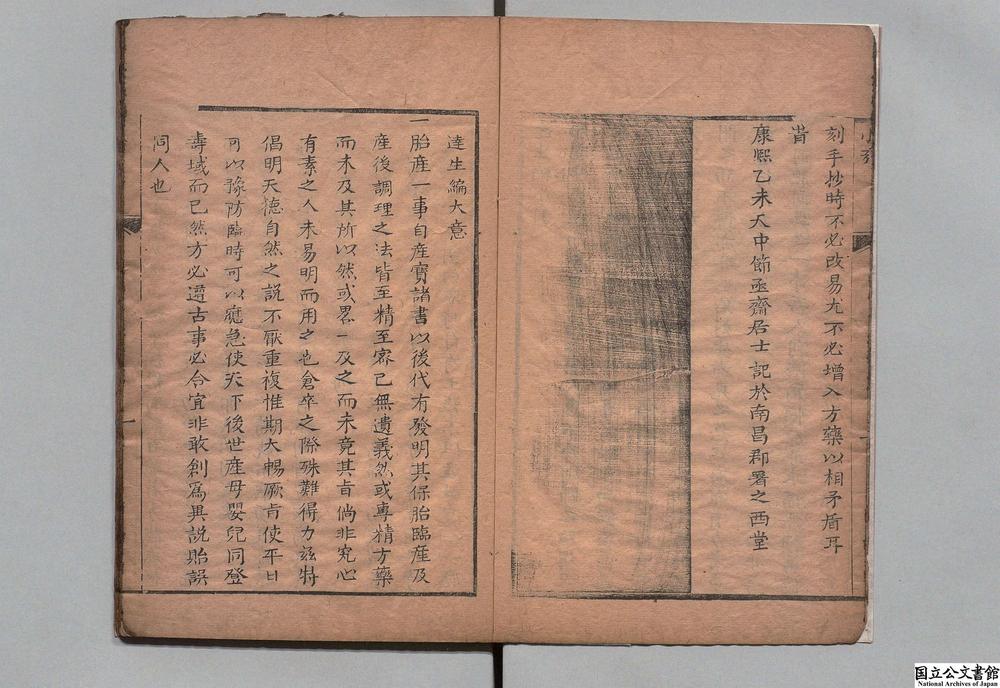 小引
刻手抄時不必改易尤不必增入方藥以相矛盾耳
旹
康熙乙未天中節亟齋居士記於南昌郡署之西堂
達生編大意
一胎産一事自産寶諸書以後代有發明其保胎臨産及
産後調理之法皆至精至密已無遺義然或專精方藥
而未及其所以然或畧一及之而未竟其旨倘非究心
有素之人未易明而用之也倉卒之際殊難得力兹特
倡明天徳自然之説不厭重複惟期大暢厥旨使平日
可以豫防臨時可以應急使天下後世産母嬰兒同登
壽域而已然方必遵古事必合宜非敢創爲異説貽誤
同人也
一
国立公文書館
National Archives of Japan